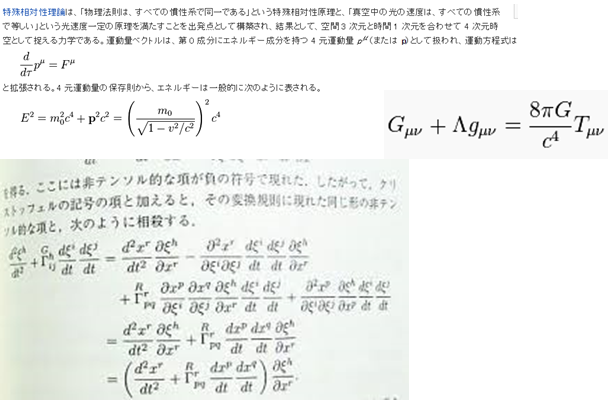 特殊相対性理論は、「物理法則は、すべての慣性系で同一である」という特殊相対性原理と、「真空中の光の速度は、すべての慣性系
で等しい」という光速度一定の原理を満たすことを出発点として構築され、結果として、空間3次元と時間1次元を合わせて4次元時
空として捉える力学である。運動量ベクトルは、第0成分にエネルギー成分を持つ4元運動量 p^μ(または p)として扱われ、運動方程式は
d/dτ p^μ = F^μ
と拡張される。4元運動量の保存則から、エネルギーは一般的に次のように表される。
E² = m₀²c⁴ + p²c² = (m₀/√(1 − v²/c²))² c⁴
G_μν + Λg_μν = 8πG/c⁴ T_μν
を得る。ここには非テンソル的な項が負の符号で現れた。したがって、クリ
ストッフェルの記号の項と加えると、その変換規則に現れた同じ形の非テン
ソル的な項と、次のように相殺する。
d²ξ^h/dt² + Γ^G{}^h_ij dξ^i/dt dξ^j/dt = d²x^r/dt² ∂ξ^h/∂x^r − ∂²x^r/∂ξ^i∂ξ^j dξ^i/dt dξ^j/dt ∂ξ^h/∂x^r
+ Γ^R{}^r_pq ∂x^p/∂ξ^i ∂x^q/∂ξ^j ∂ξ^h/∂x^r dξ^i/dt dξ^j/dt + ∂²x^p/∂ξ^i∂ξ^j ∂ξ^h/∂x^p dξ^i/dt dξ^j/dt
= d²x^r/dt² ∂ξ^h/∂x^r + Γ^R{}^r_pq dx^p/dt dx^q/dt ∂ξ^h/∂x^r
= (d²x^r/dt² + Γ^R{}^r_pq dx^p/dt dx^q/dt) ∂ξ^h/∂x^r.